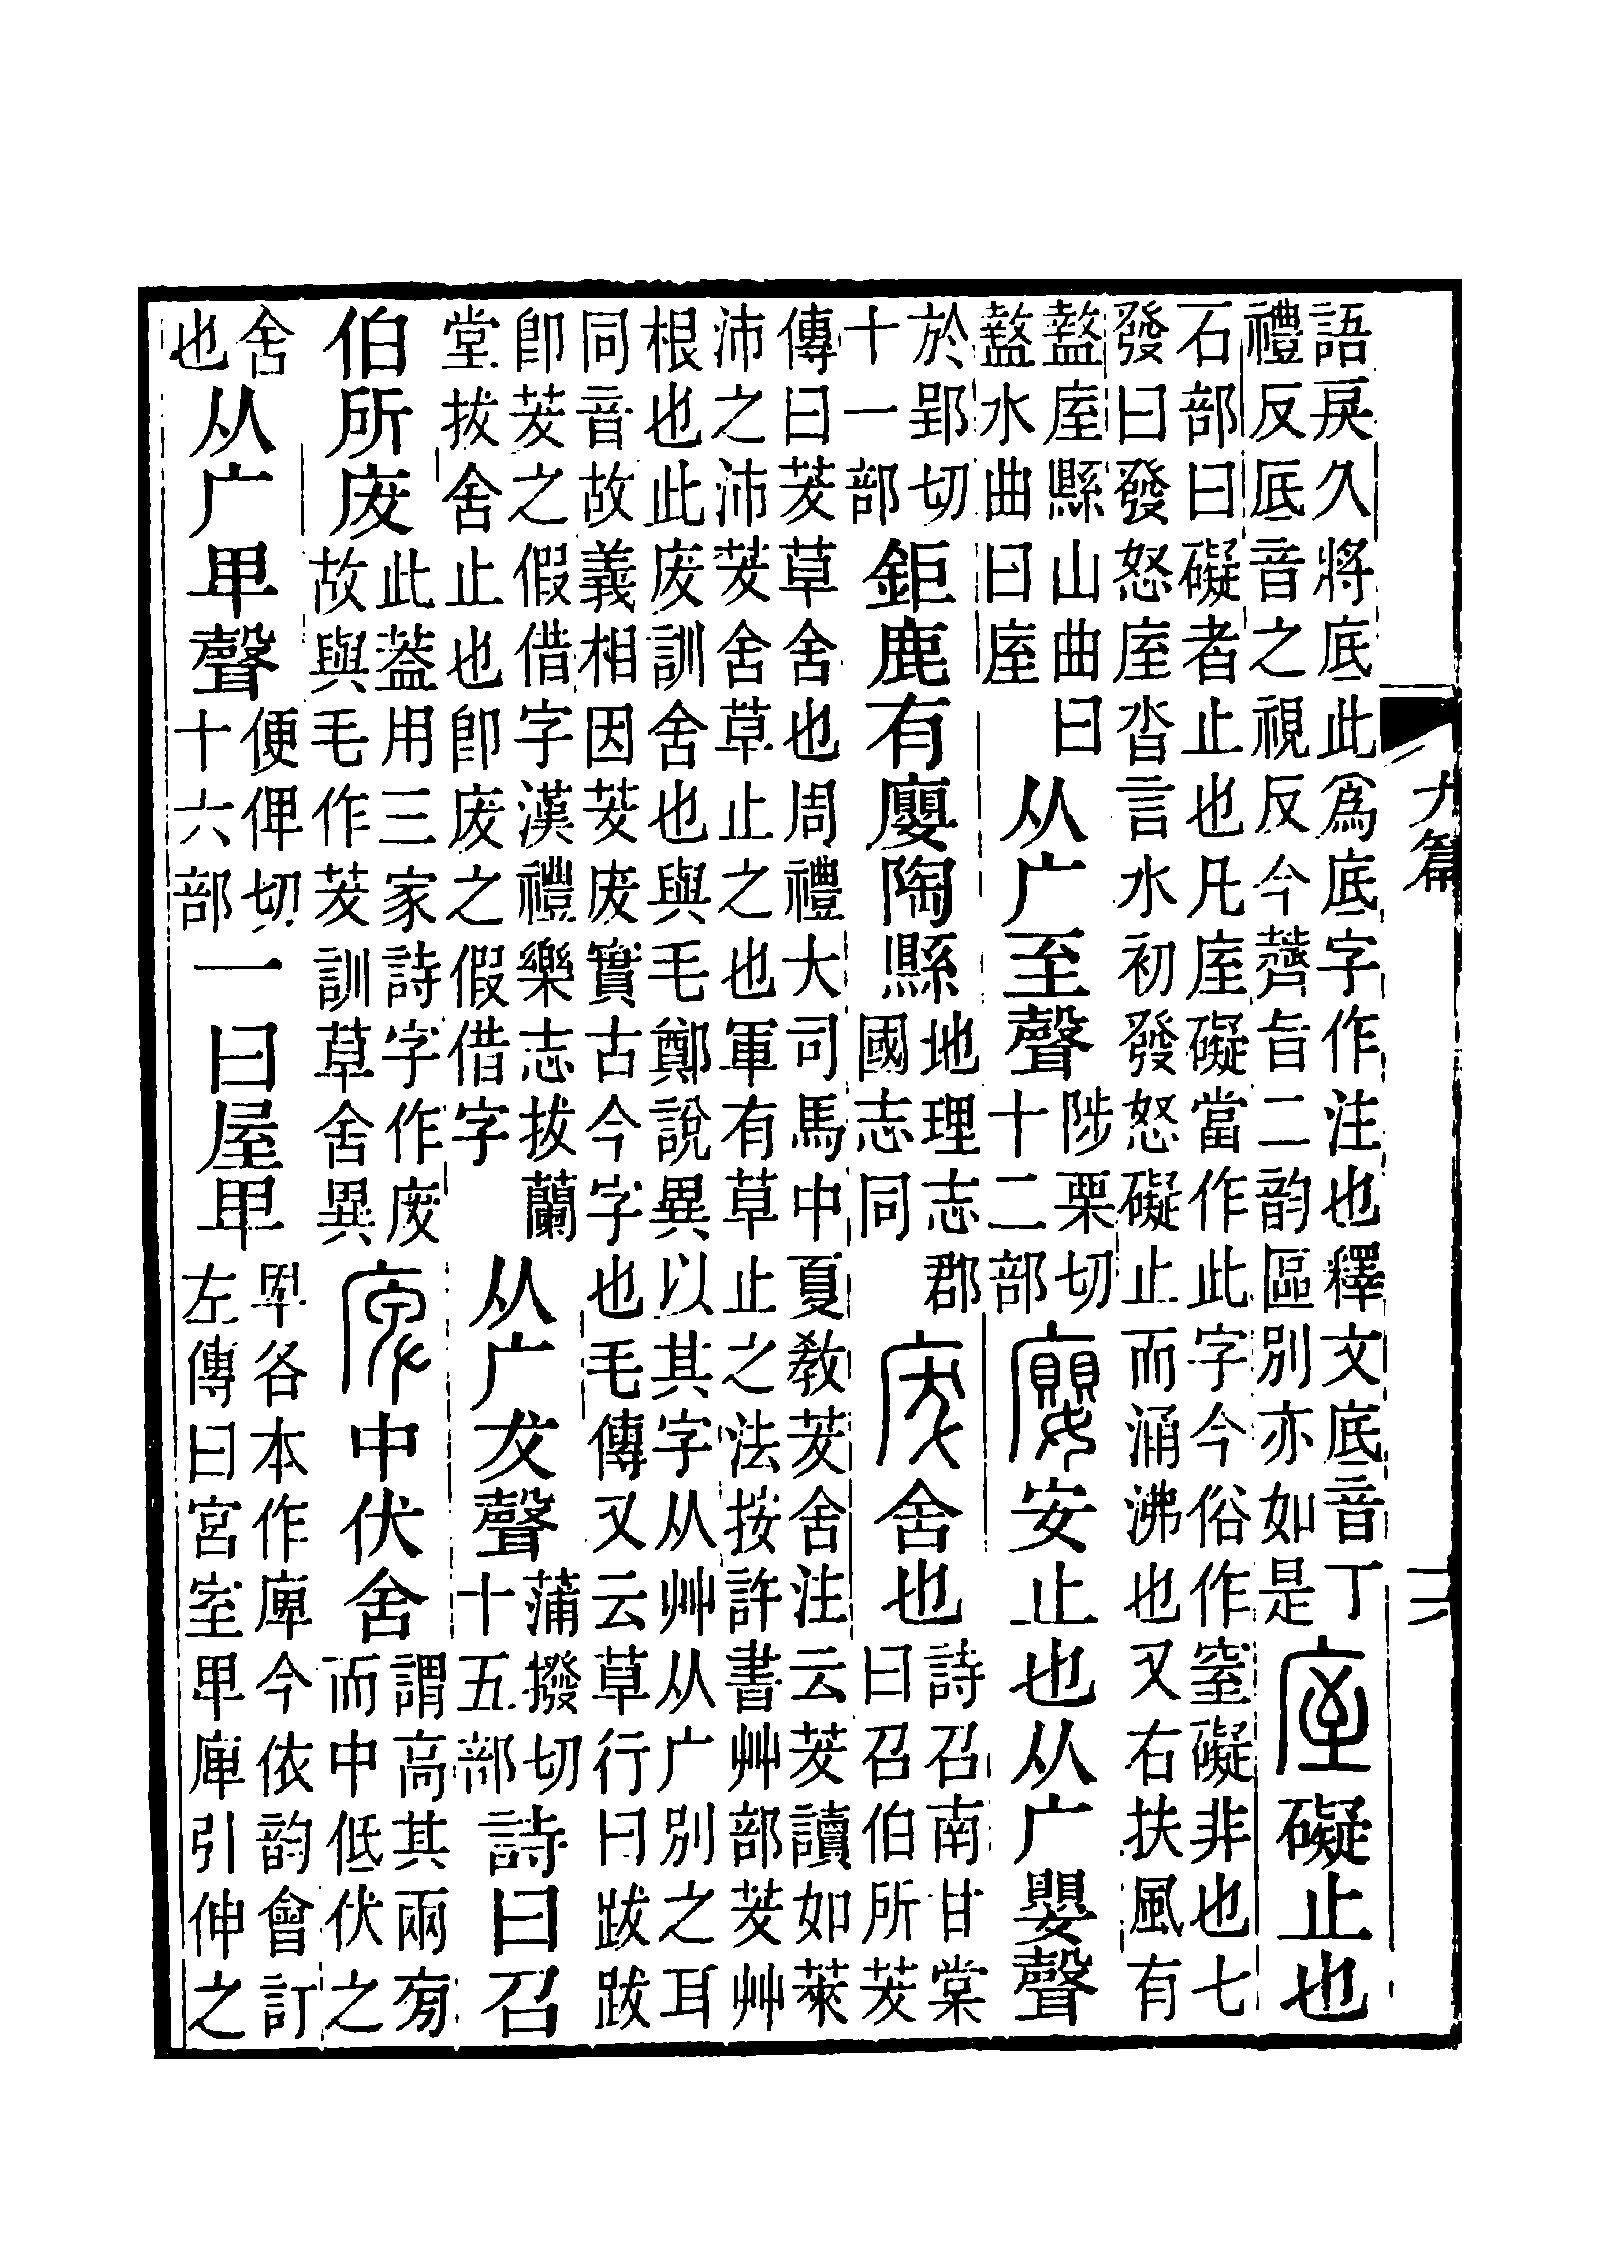 語戾久將底此爲底字作注也釋文底音丁
禮反厎音之視反今薺旨二韵區別亦如是
庢礙止也
石部曰礙者止也凡庢礙當作此字今俗作窒礙非也七
發曰發怒庢沓言水初發怒礙止而涌沸也又右扶風有
盩庢縣山曲曰
盩水曲曰庢
从广至聲
陟栗切
十二部
廮安止也从广嬰聲
於郢切
十一部
鉅鹿有廮陶縣
地理志郡
國志同
废舍也
詩召南甘棠
曰召伯所茇
傳曰茇草舍也周禮大司馬中夏教茇舍注云茇讀如萊
沛之沛茇舍草止之也軍有草止之法按許書艸部茇艸
根也此废訓舍也與毛鄭說異以其字从艸从广別之耳
同音故義相因茇废實古今字也毛傳又云草行曰跋跋
卽茇之假借字漢禮樂志拔蘭
堂拔舍止也卽废之假借字
从广犮聲
蒲撥切
十五部
詩曰召
伯所废
此葢用三家詩字作废
故與毛作茇訓草舍異
庳中伏舍
謂高其兩㫄
而中低伏之
舍
也
从广卑聲
便俾切
十六部
一曰屋卑
卑各本作庳今依韵會訂
左傳曰宮室卑庳引伸之
九篇